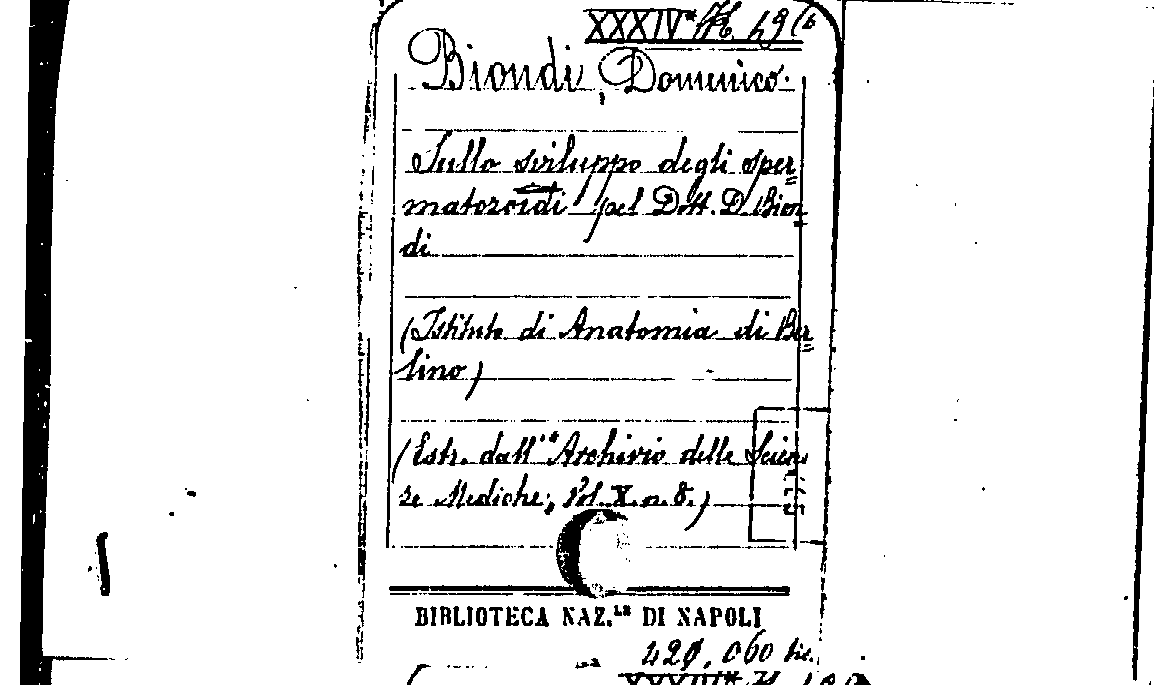 XXXIV* H 49 (6
Biondi, Domenico.
Sullo sviluppo degli sper=
matozoidi pel Dott. D. Bion=
di
(Istituto di Anatomia di Ber=
lino)
(Estr. dall'"Archivio delle Scien=
ze Mediche, Vol. X. n. 8.)
BIBLIOTECA NAZ.LE DI NAPOLI